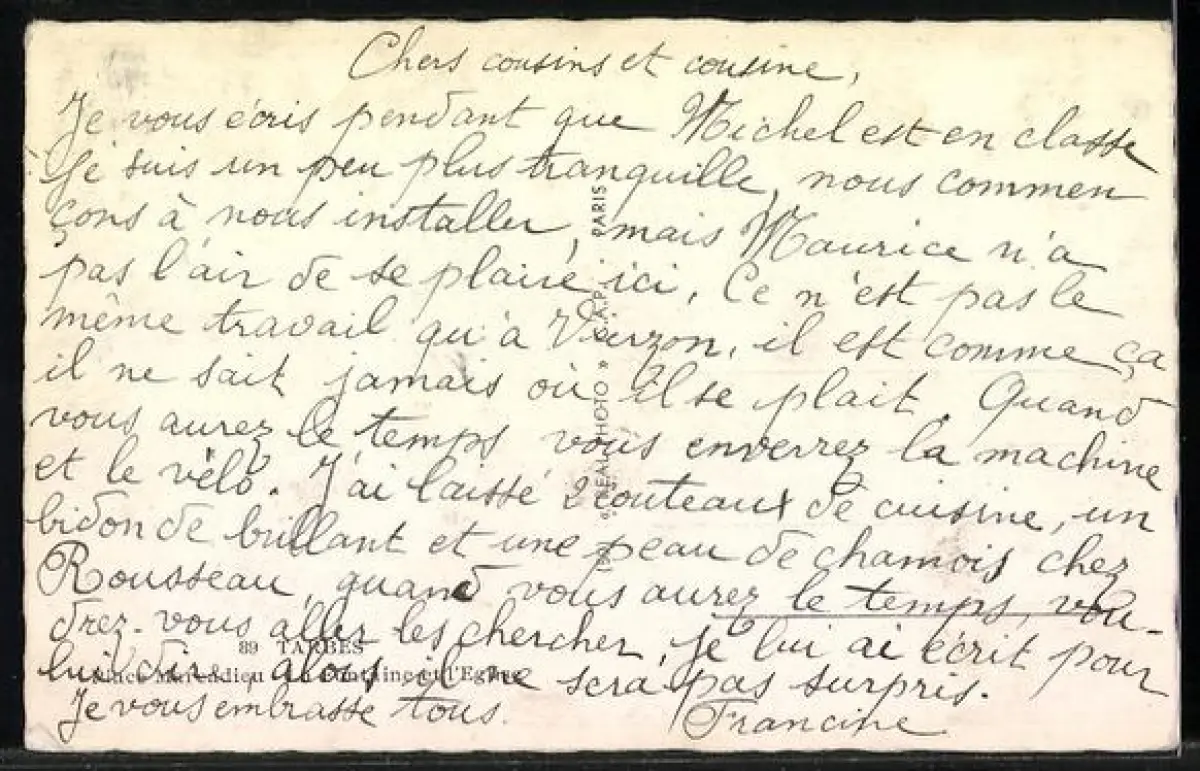 Chers cousins et cousine,
Je vous écris pendant que Michel est en classe
Je suis un peu plus tranquille, nous commen
çons à nous installer, mais Maurice n'a
pas l'air de se plaire ici. Ce n'est pas le
même travail qu'à Vierzon, il est comme ça
il ne sait jamais où il se plait. Quand
vous aurez le temps vous enverrez la machine
et le vélo. J'ai laissé 2 couteaux de cuisine, un
bidon de brillant et une peau de chamois chez
Rousseau, quand vous aurez le temps, vou-
drez-vous aller les chercher, je lui ai écrit pour
lui dir, alors il ne sera pas surpris.
Je vous embrasse tous. Francine
89 TARBES
Place Marcadieu La Fontaine et l'Eglise
PHOTO » C.A.P. PARIS